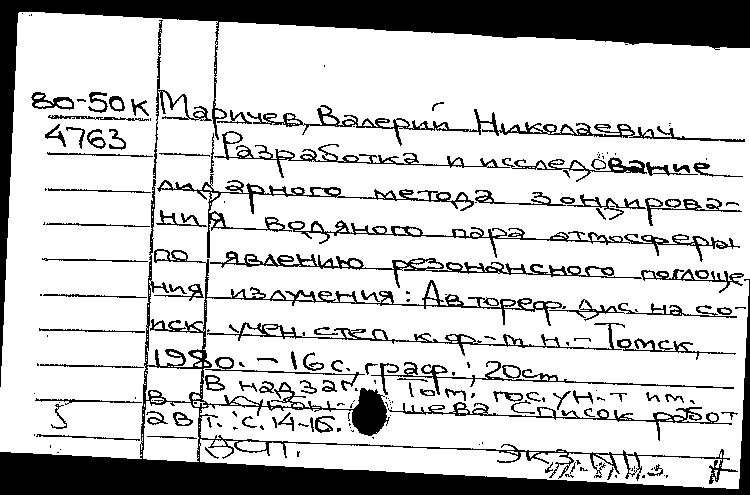 80-50к Маричев, Валерий Николаевич.
4763 Разработка и исследование
лидарного метода зондирова-
ния водяного пара атмосферы
по явлению резонансного поглоще-
ния излучения: Автореф. дис. на со-
иск. учен. степ. к.ф.-м.н. - Томск,
1980. - 16 с., граф.; 20 см.
В надзаг.: Том. гос. ун-т им.
В. В. Куйбышева. Список работ
5 авт.: с. 14-16.
ДСП. ЭКЗ. №